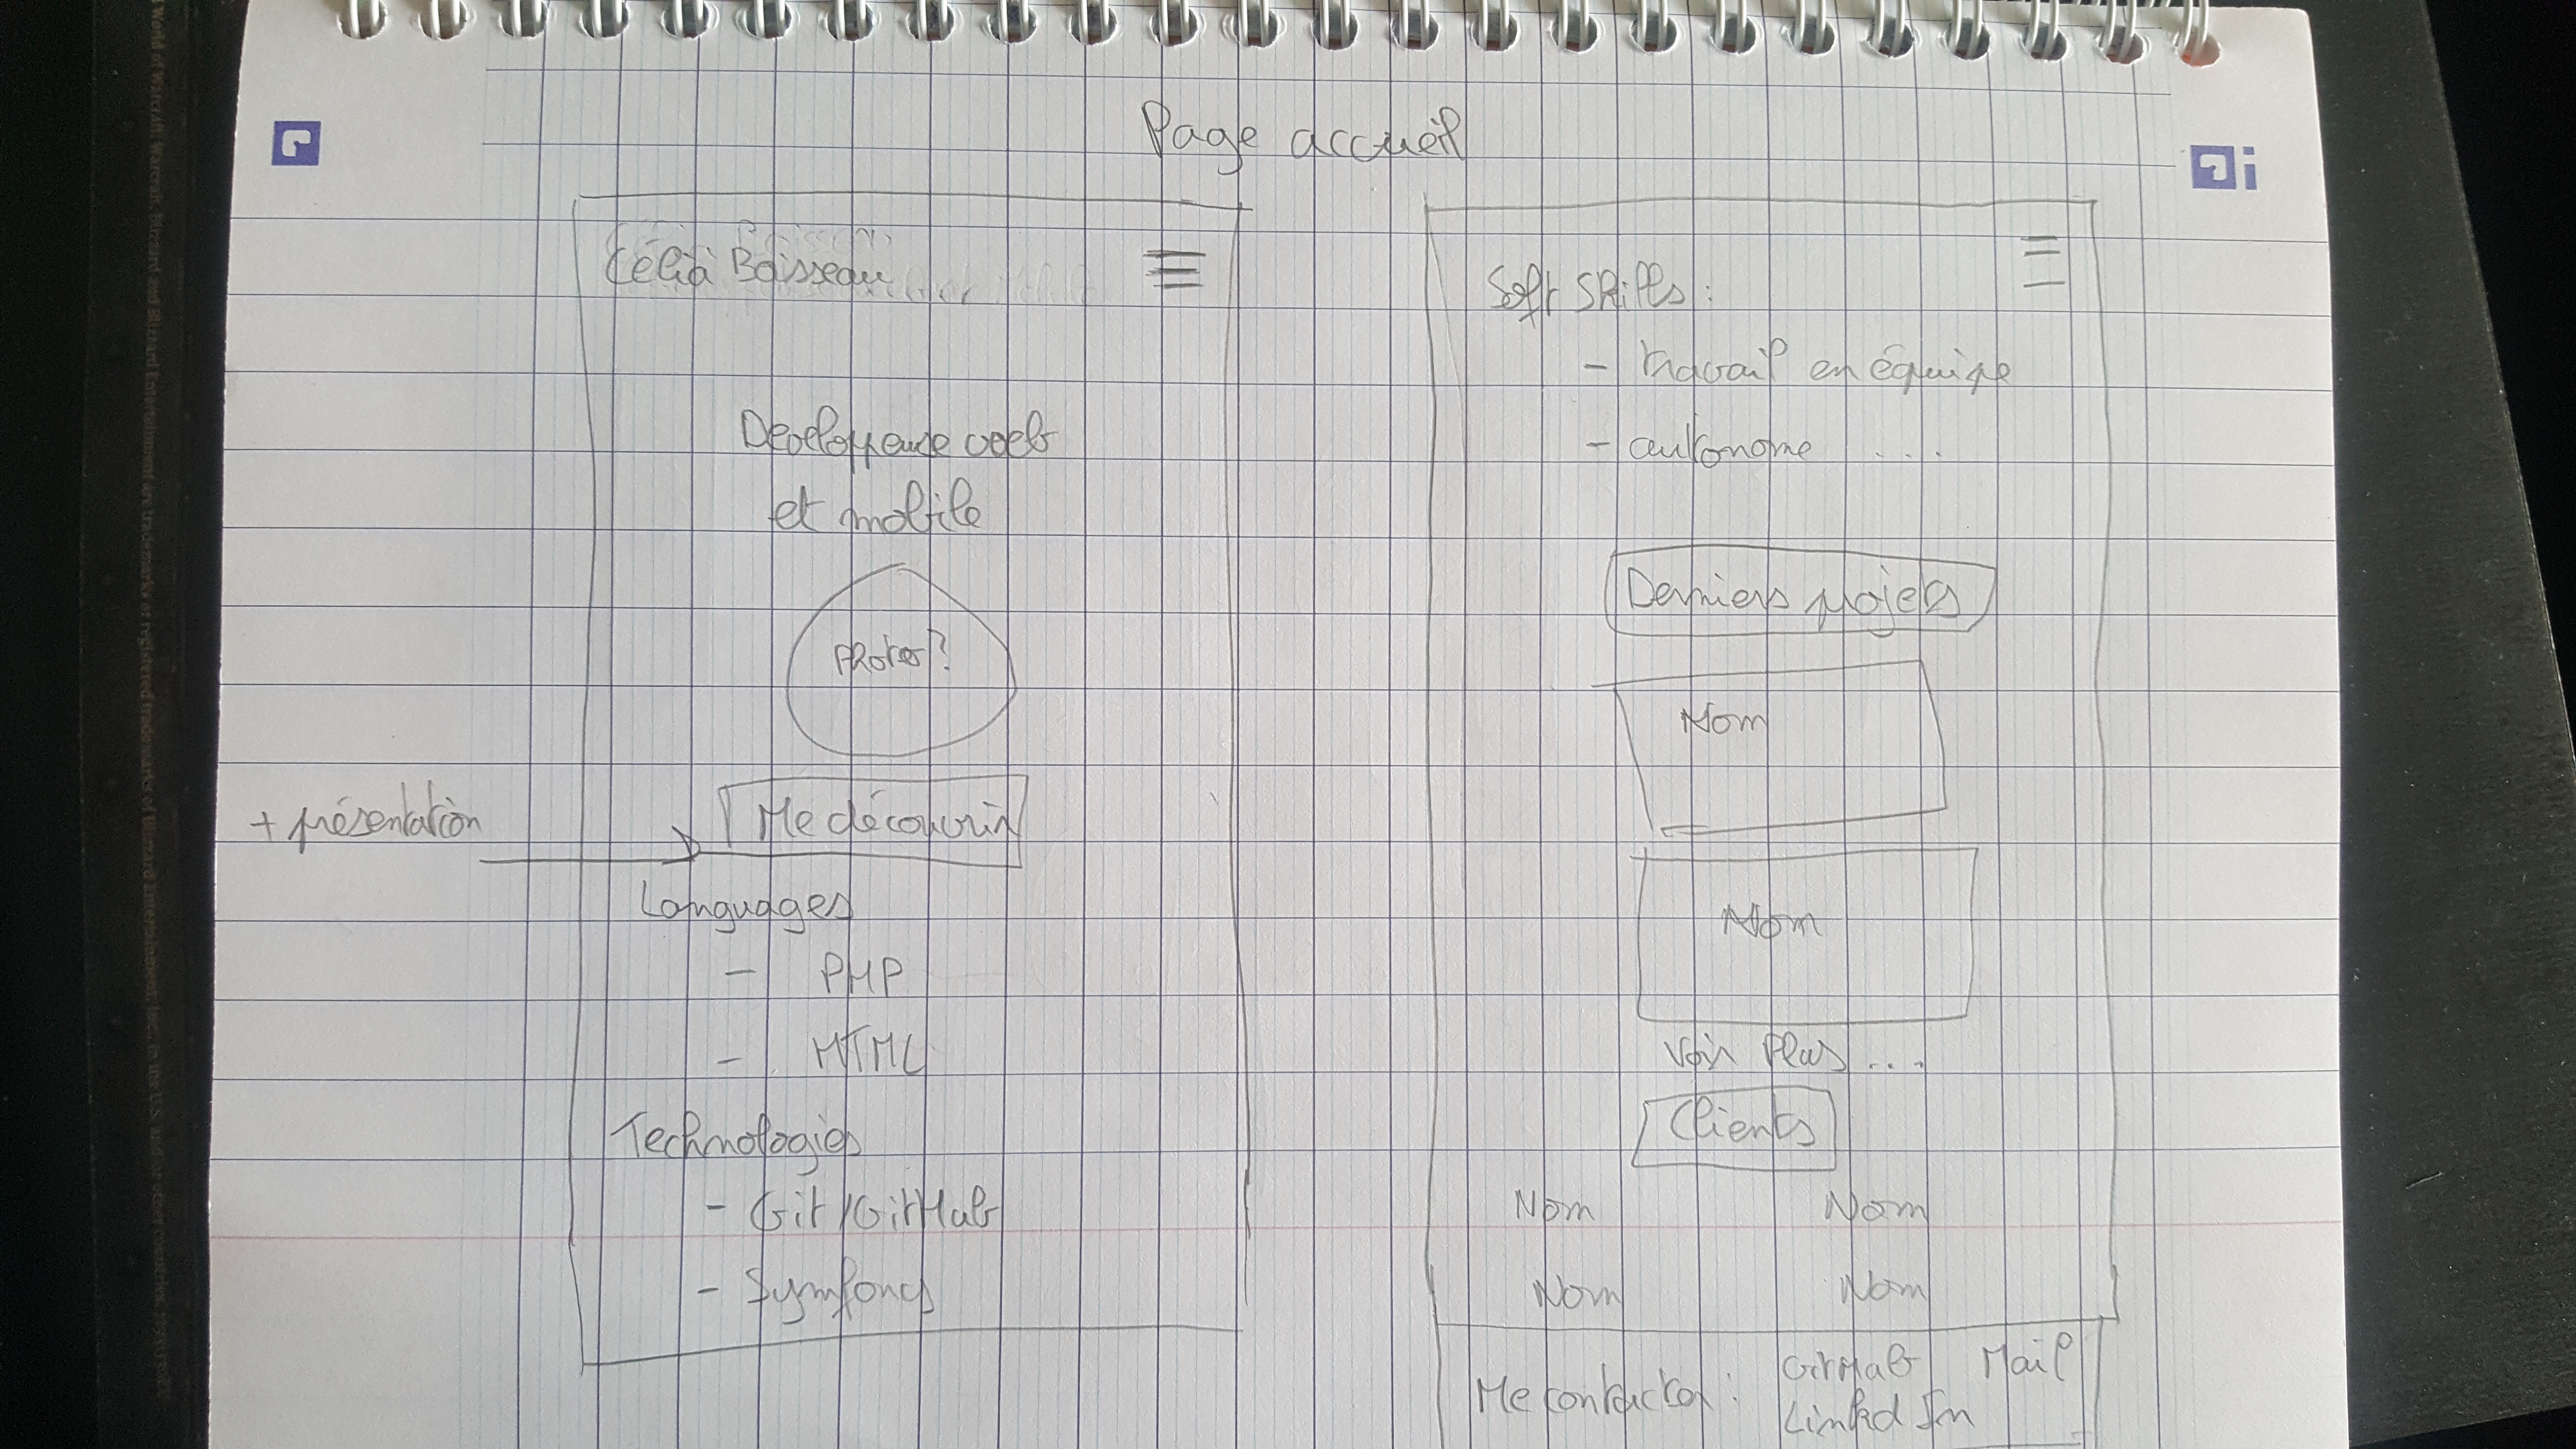 Page accueil
Célia Boisseau
Developpeuse web
et mobile
Photo?
+ présentation
Me découvrir
Languages
- PHP
- HTML
Technologies
- Git/GitHub
- Symfony
Soft Skills :
- travail en équipe
- autonome ...
Derniers projets
Nom
Nom
Voir Plus ...
Clients
Nom Nom
Nom Nom
Me contacter : GitHub Mail
Linked In